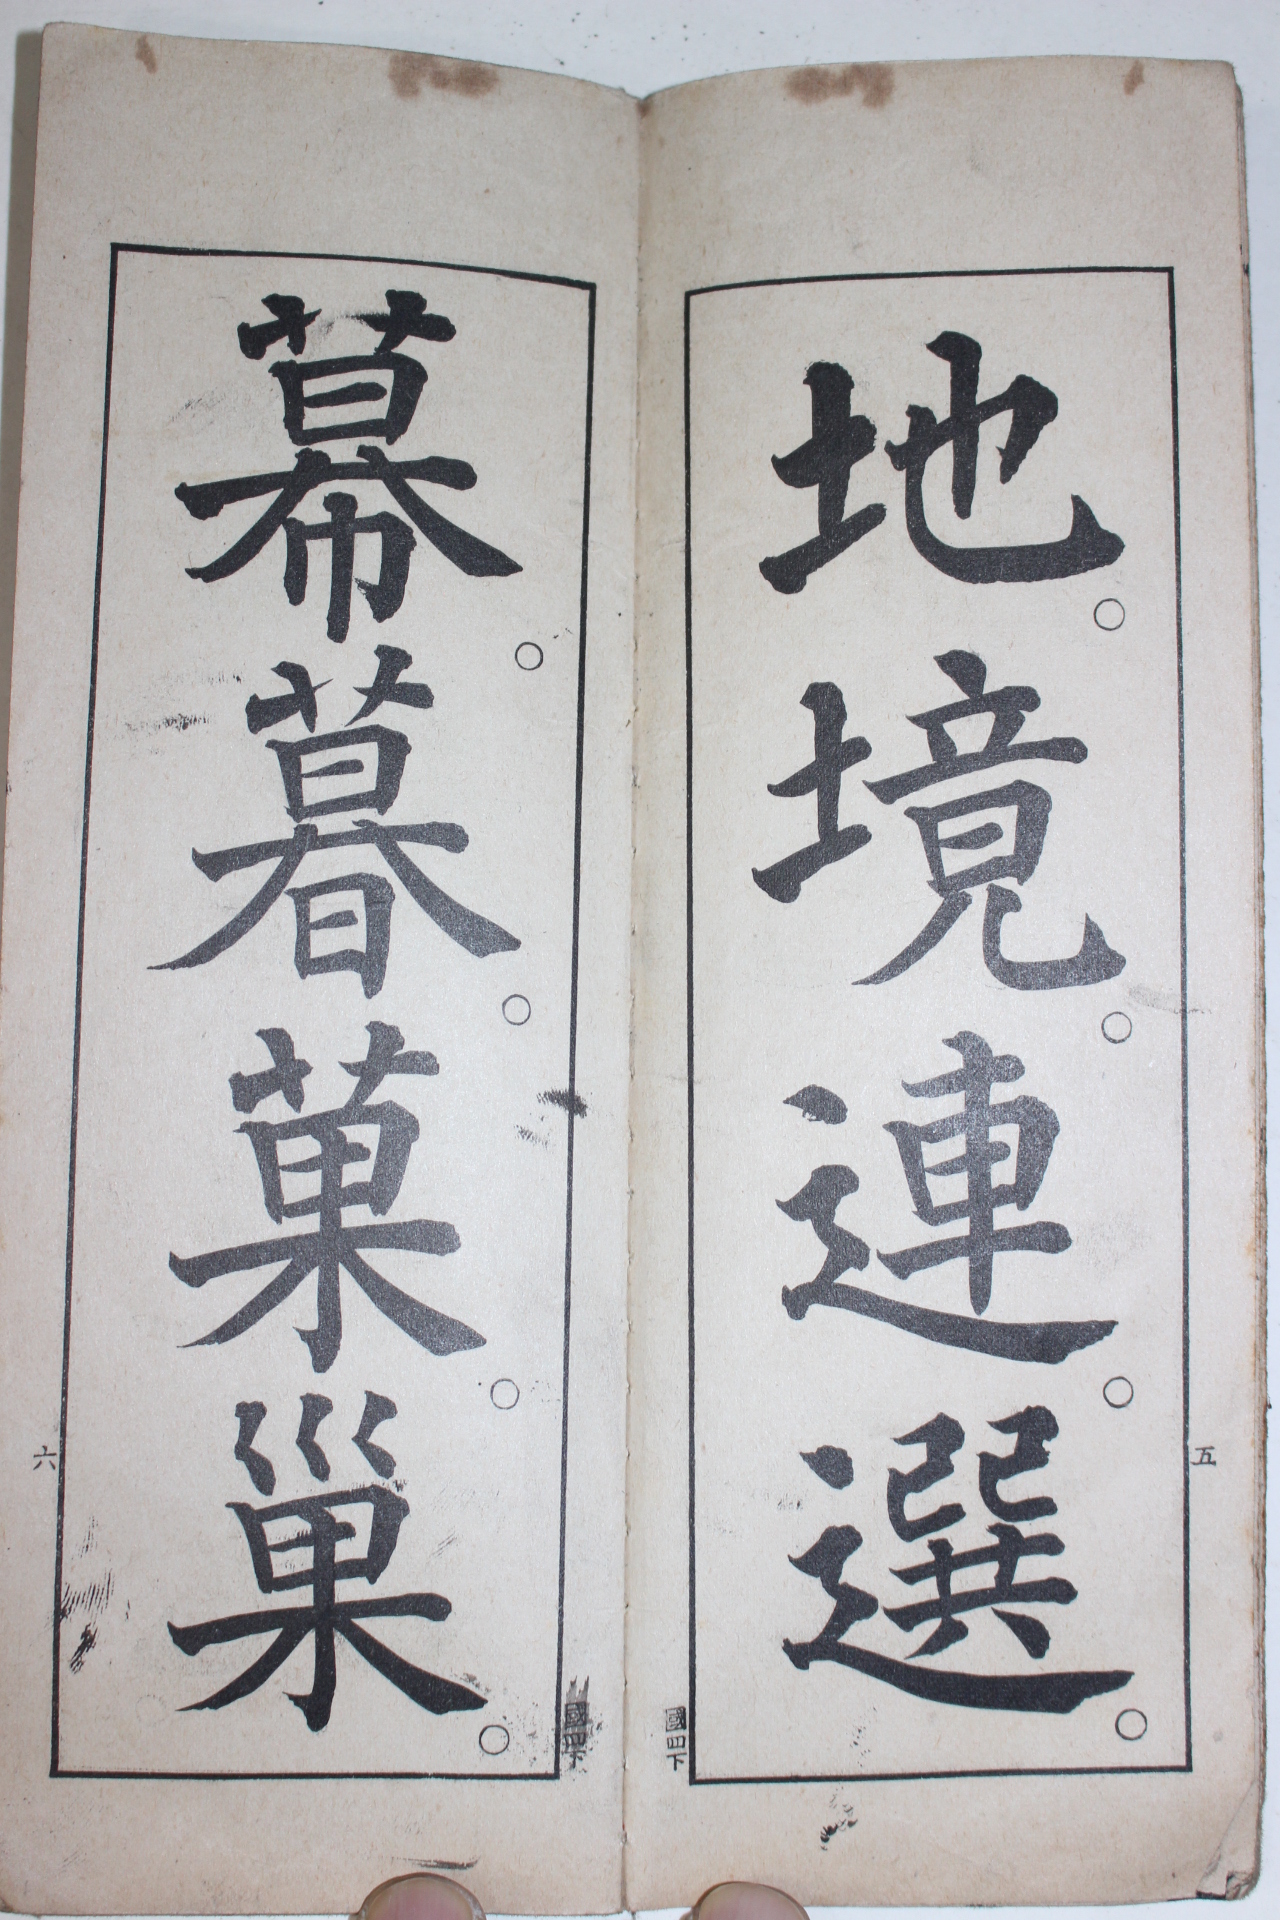 地。境。連。選。
五
國四下
幕。暮。菓。巢。
六
國四下